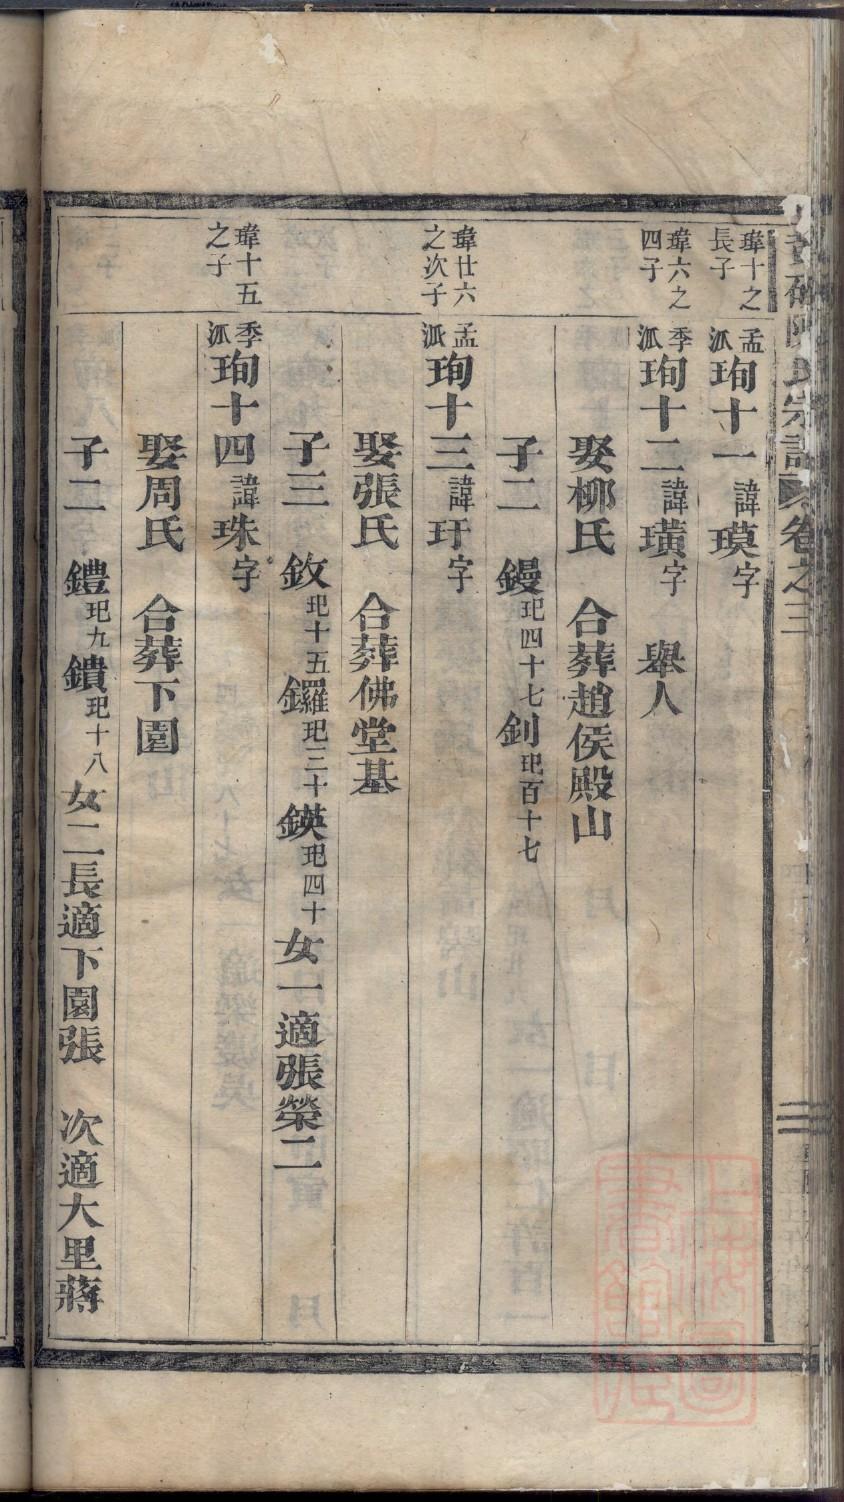 陳氏宗譜 卷之三
瑋十之長子
孟派珣十一諱瑻字
瑋六之四子
季派珣十二諱璜字 舉人
娶柳氏 合葬趙侯殿山
子二 鏝玘四十七 釗玘百十七
瑋廿六之次子
孟派珣十三諱玕字
娶張氏 合葬佛堂基
子三 鈫玘十五 鑼玘三十 鍈玘四十 女一適張榮二
瑋十五之子
季派珣十四諱珠字
娶周氏 合葬下園
子二 鐙玘九 鐀玘十八 女二長適下園張 次適大里蔣
上海圖書館藏